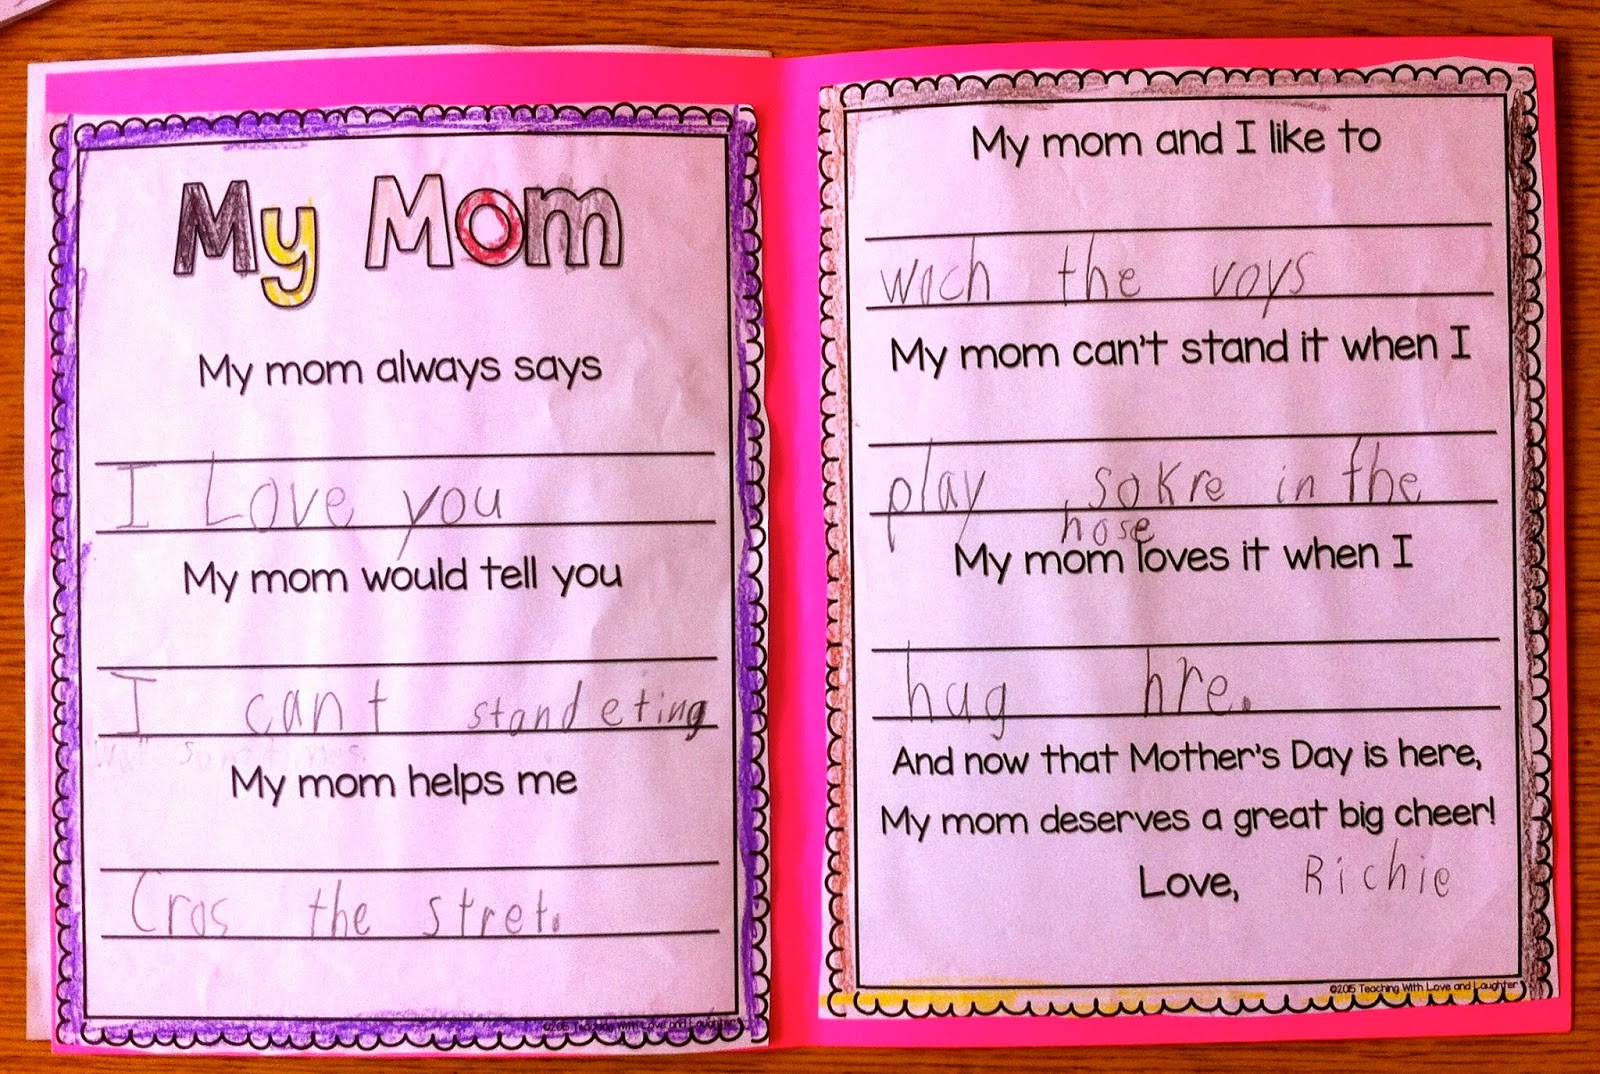 My Mom
My mom always says
I Love you
My mom would tell you
I cant stand eting
My mom helps me
Cros the stret.
©2015 Teaching With Love and Laughter
My mom and I like to
wach the voys
My mom can't stand it when I
play sokre in the
hose
My mom loves it when I
hug hre.
And now that Mother's Day is here,
My mom deserves a great big cheer!
Love, Richie
©2015 Teaching With Love and Laughter